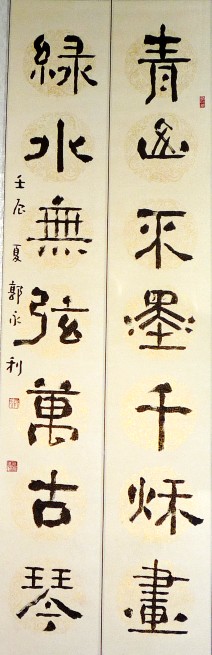 青山不墨千秋畫
綠水無弦萬古琴
壬辰夏郭永利